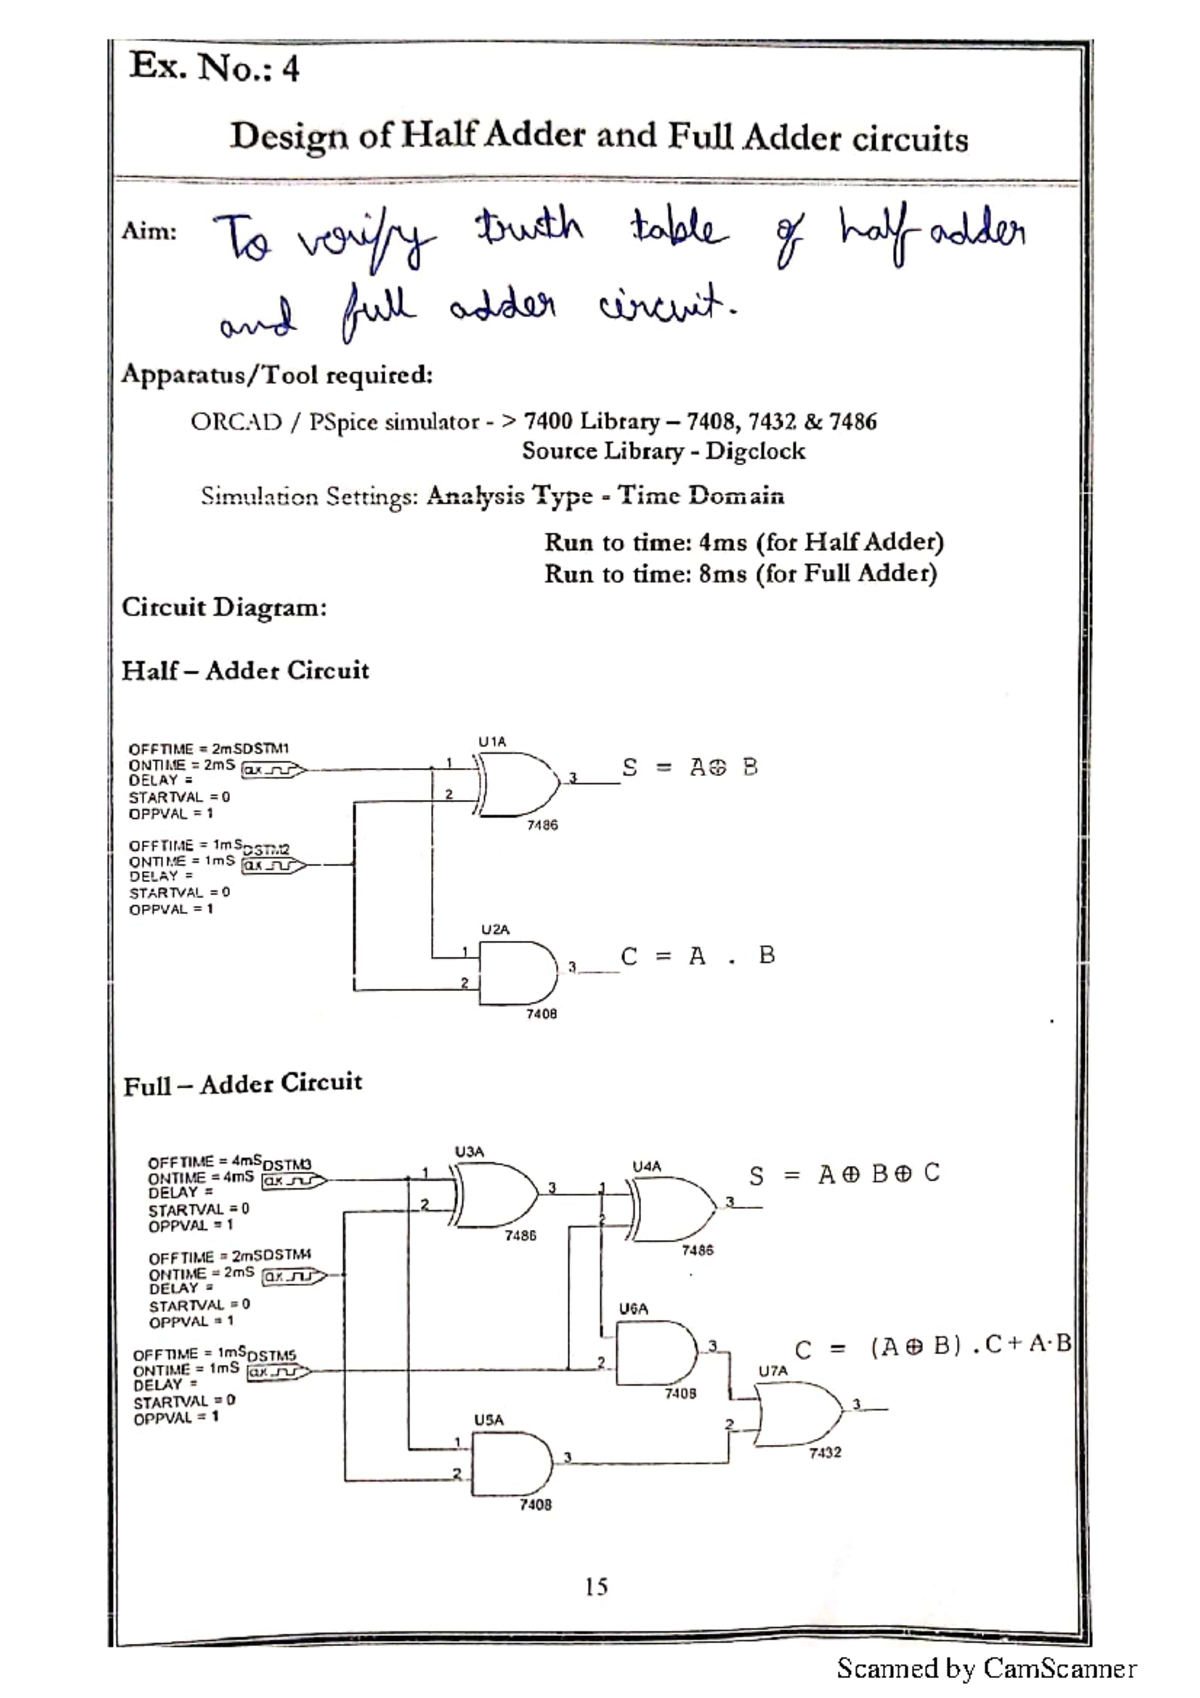 Ex. No.: 4
Design of Half Adder and Full Adder circuits
Aim: To verify truth table of half adder
and full adder circuit.
Apparatus/Tool required:
ORCAD / PSpice simulator - > 7400 Library – 7408, 7432 & 7486
Source Library - Digclock
Simulation Settings: Analysis Type - Time Domain
Run to time: 4ms (for Half Adder)
Run to time: 8ms (for Full Adder)
Circuit Diagram:
Half – Adder Circuit
OFFTIME = 2mS DSTM1
ONTIME = 2mS
DELAY =
STARTVAL = 0
OPPVAL = 1
U1A
1
2
3
7486
S = A⊕ B
OFFTIME = 1mS DSTM2
ONTIME = 1mS
DELAY =
STARTVAL = 0
OPPVAL = 1
U2A
1
2
3
7408
C = A . B
Full – Adder Circuit
OFFTIME = 4mS DSTM3
ONTIME = 4mS
DELAY =
STARTVAL = 0
OPPVAL = 1
U3A
1
2
3
7486
U4A
1
2
3
7486
S = A⊕ B⊕ C
OFFTIME = 2mS DSTM4
ONTIME = 2mS
DELAY =
STARTVAL = 0
OPPVAL = 1
U6A
2
3
7408
C = (A⊕ B) .C+ A·B
OFFTIME = 1mS DSTM5
ONTIME = 1mS
DELAY =
STARTVAL = 0
OPPVAL = 1
U7A
2
3
7432
U5A
1
2
3
7408
15
Scanned by CamScanner